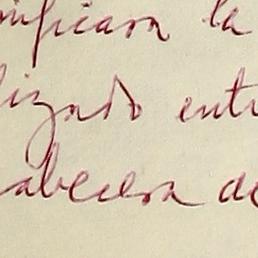 nificara la
lizado entr
abecera de